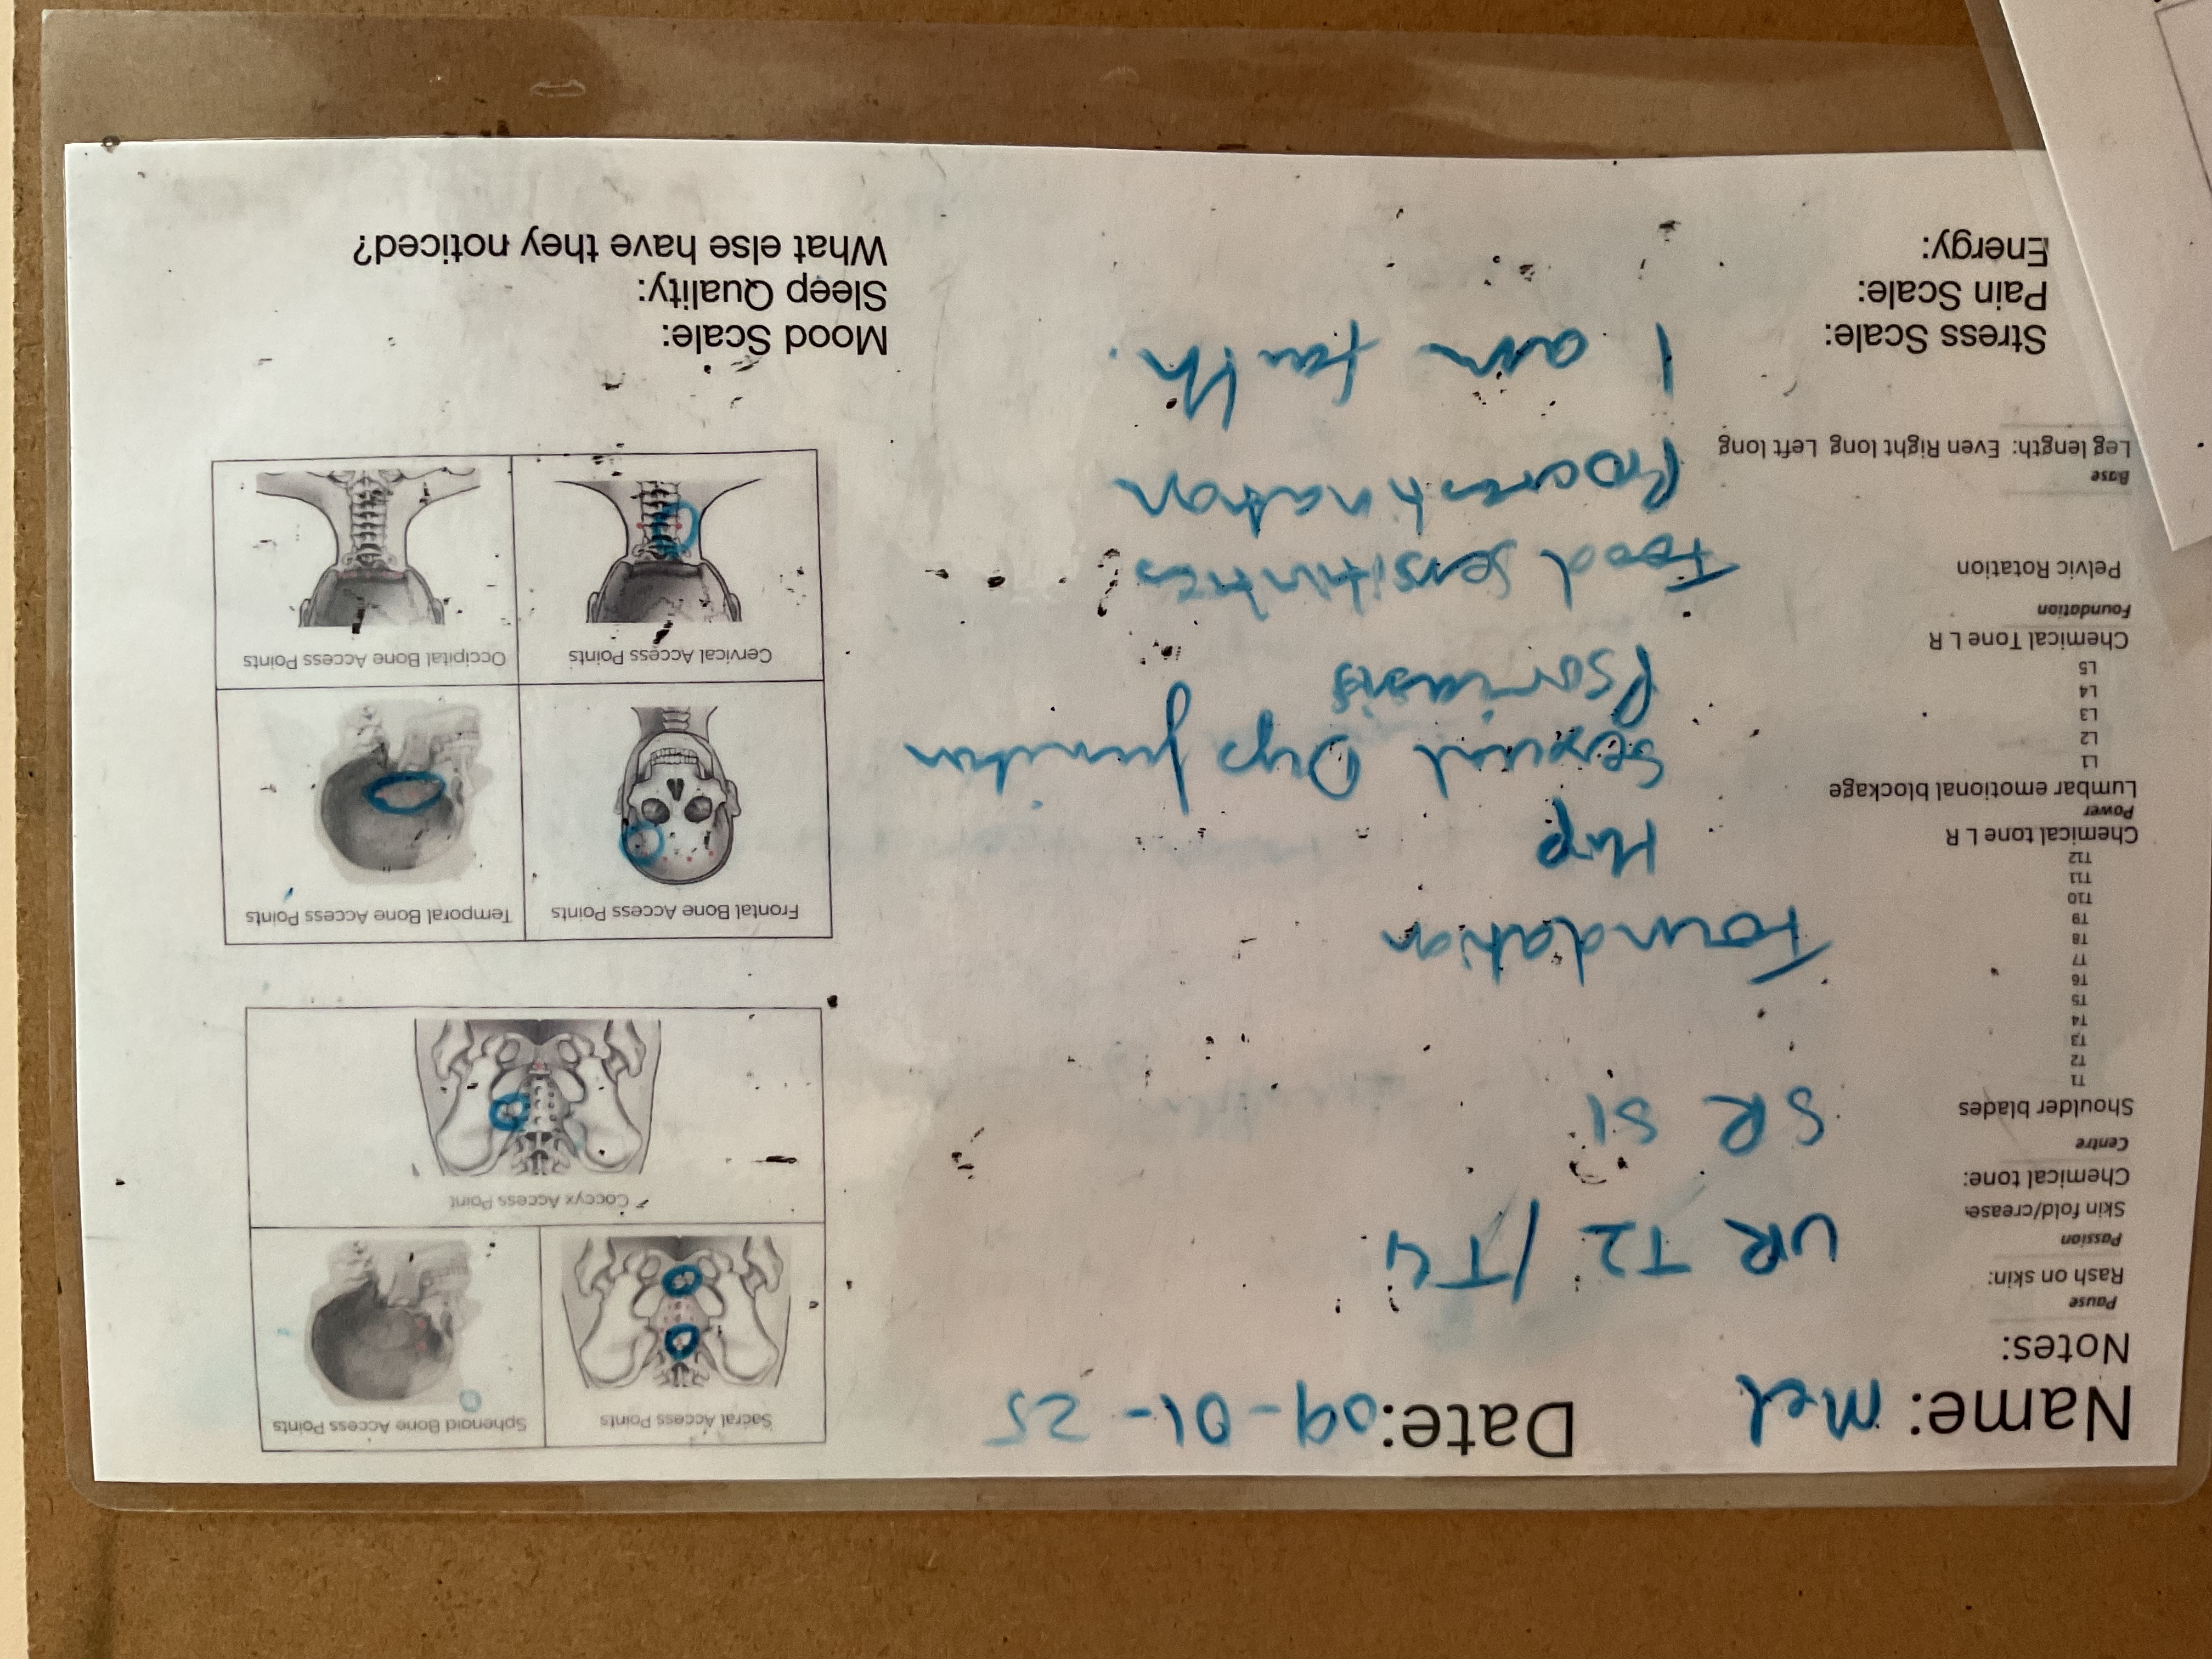 Name: Mel Date: 09-01-25
Notes:
Pause
Rash on skin:
Passion
Skin fold/crease:
Chemical tone:
Centre
Shoulder blades
T1
T2
T3
T4
T5
T6
T7
T8
T9
T10
T11
T12
Chemical tone L R
Power
Lumbar emotional blockage
L1
L2
L3
L4
L5
Chemical Tone L R
Foundation
Pelvic Rotation
Base
Leg length: Even Right long Left long
Stress Scale:
Pain Scale:
Energy:
UR T2 / T4
SR S1
Foundation
Hip
Sexual Dysfunction
Psoriasis
Food Sensitivities
I am faith.
Sacral Access Points
Sphenoid Bone Access Points
Coccyx Access Point
Frontal Bone Access Points
Temporal Bone Access Points
Cervical Access Points
Occipital Bone Access Points
Mood Scale:
Sleep Quality:
What else have they noticed?